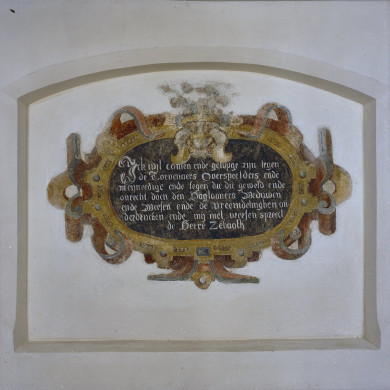 Ick wil comen ende getuyge zijn tegen
de Tovenaers Overspeelders ende
meyneedige ende tegen die die geweld ende
onrecht doen den Dagloaners Weduwen
ende Weesen ende de vreemdelinghen
verdrucken ende my niet vreesen spreect
de Heere Zebaoth